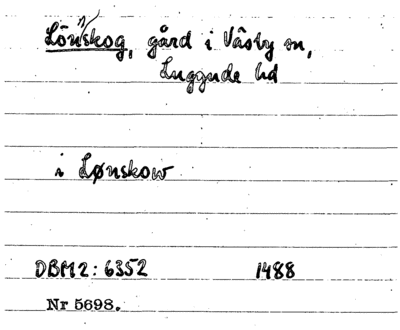 Lönnskog, gård i Väsby sn,
Luggude hd
i Lønskow
DBM2: 6352 1488
Nr 5698.